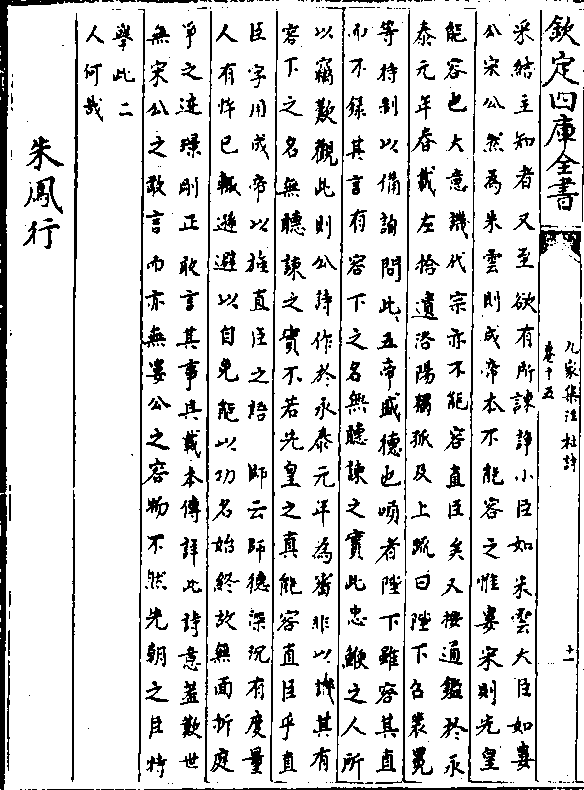 欽定四庫全書
九家集注杜詩
卷十五
十一
采結主知者又至欲有所諫諍小臣如朱雲大臣如婁
公宋公然為朱雲則成帝本不能容之惟婁宋則先皇
能容也大意譏代宗亦不能容直臣矣又按通鑑於永
泰元年春載左拾遺洛陽獨孤及上疏曰陛下召裴冕
等待制以備詢問此五帝盛德也頃者陛下雖容其直
而不録其言有容下之名無聽諫之實此忠鯁之人所
以竊歎觀此則公詩作於永泰元年為審非以譏其有
容下之名無聽諫之實不若先皇之真能容直臣乎直
臣字用成帝以旌直臣之語 師云師德深沉有度量
人有忤已輙遜避以自免能以功名始終故無面折庭
爭之迹璟剛正敢言其事具載本傳詳此詩意蓋歎世
無宋公之敢言而亦無婁公之容物不然先朝之臣特
舉此二
人何哉
朱鳳行